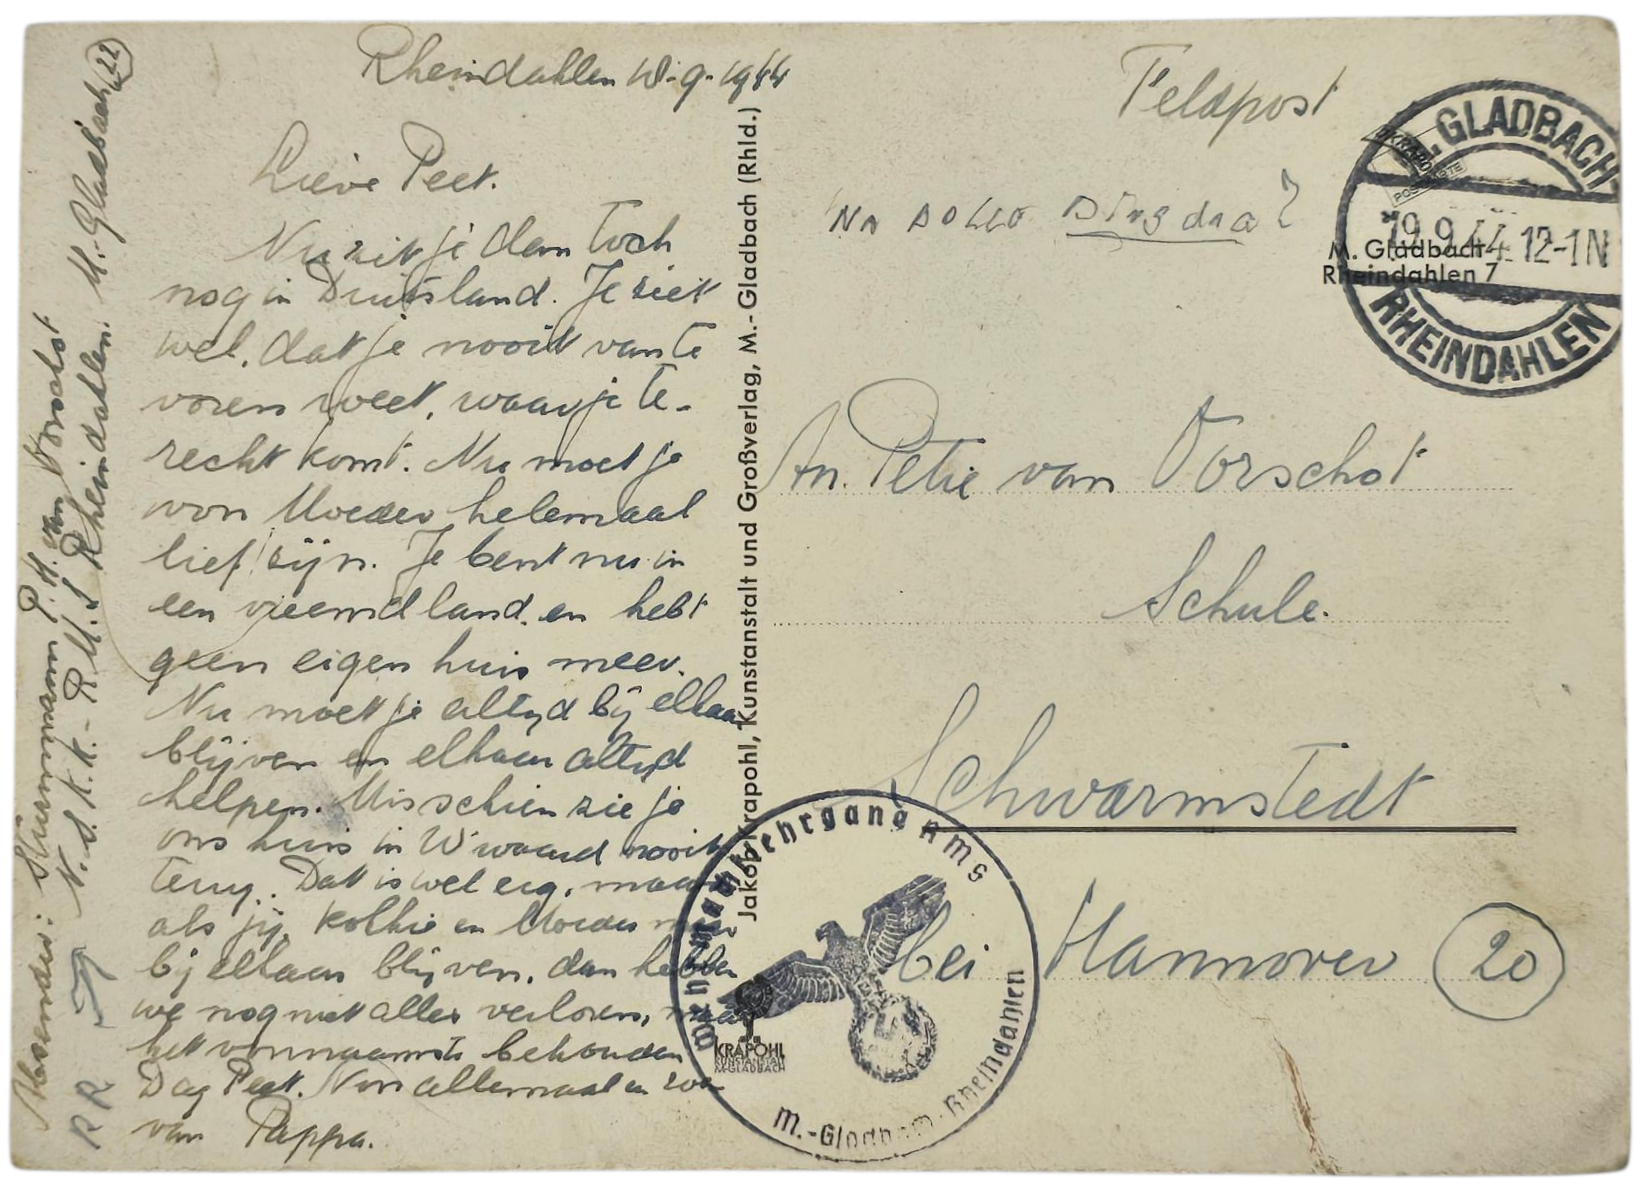 Rheindahlen 18-9-1944
Lieve Peet.
Nu zit je dan toch
nog in Duitsland. Je ziet
wel, dat je nooit van te
voren weet, waar je te-
recht komt. Nu moet je
voor Moeder helemaal
lief zijn. Je bent nu in
een vreemd land en hebt
geen eigen huis meer.
Nu moet je altijd bij elkaar
blijven en elkaar altijd
helpen. Misschien zie je
ons huis in W'waard nooit
terug. Dat is wel erg, maar
als jij, Kolkie en Moeder maar
bij elkaar blijven, dan hebben
we nog niet alles verloren, maar
het voornaamste behouden
Dag Peet. Voor allemaal en zoen
van Pappa.
Absender: Sturmmann P. H. van Vorschot
N.S.K.K.-R.M.S Rheindahlen. M.-Gladbach 22
RR
Jakob Krapohl, Kunstanstalt und Großverlag, M.-Gladbach (Rhld.)
KRAPOHL
KUNSTANSTALT
M-GLADBACH
Feldpost
M. GLADBACH
19.9.44.12-1N
RHEINDAHLEN
M. Gladbach
Rheindahlen 7
An. Petie van Vorschot
Schule.
Schwarmstedt
bei Hannover 20
Lehrgang RMS
M.-Gladbach-Rheindahlen